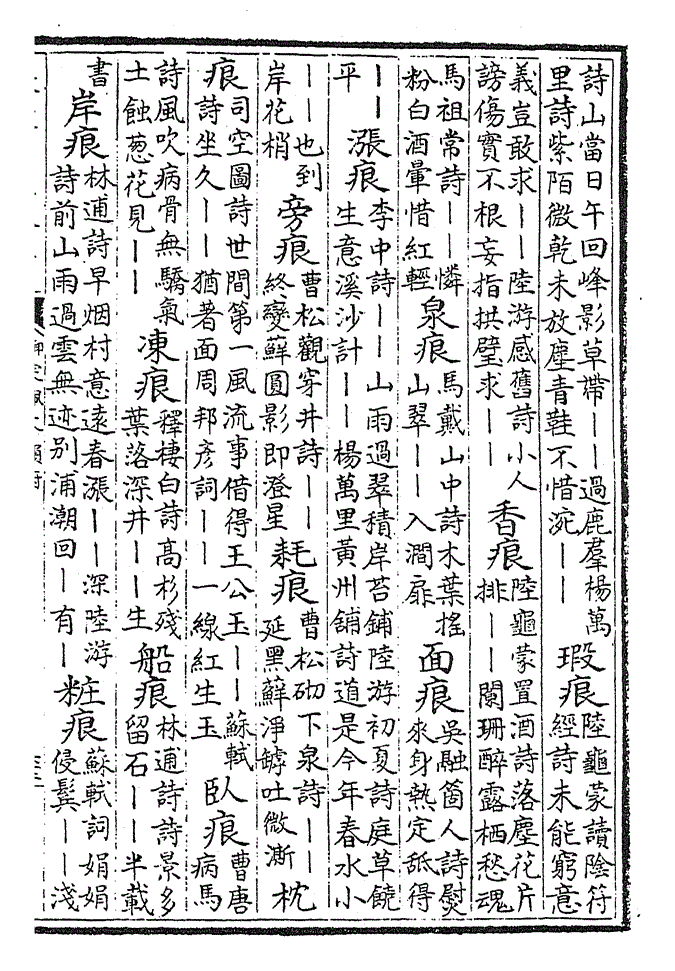 詩山當日午回峰影草帶——過鹿羣楊萬里詩紫陌微乾未放塵青鞋不惜涴——瑕痕陸龜蒙讀陰符經詩未能窮意
義豈敢求——陸游感舊詩小人謗傷實不根妄指拱璧求——香痕陸龜蒙置酒詩落塵花片排——闌珊醉露栖愁魂
馬祖常詩——憐粉白酒暈惜紅輕泉痕馬戴山中詩木葉搖山翠——入澗扉面痕吳融箇人詩熨來身熱定舐得
——平漲痕李中詩——山雨過翠積岸苔鋪陸游初夏詩庭草饒生意溪沙計——楊萬里黃州舖詩道是今年春水小
——也到岸花梢旁痕曹松觀穿井詩——終變蘚圓影即澄星耗痕曹松砌下泉詩——延黑蘚淨罅吐微澌枕
痕司空圖詩世間第一風流事借得王公玉——蘇軾詩坐久——猶著面周邦彥詞——一線紅生玉臥痕曹唐病馬
詩風吹病骨無驕氣土蝕葱花見——凍痕釋棲白詩高杉殘葉落深井——生船痕林逋詩詩景多留石——半載
書岸痕林逋詩早烟村意遠春漲——深陸游詩前山雨過雲無迹别浦潮回—有—粧痕蘇軾詞娟娟侵鬢——淺